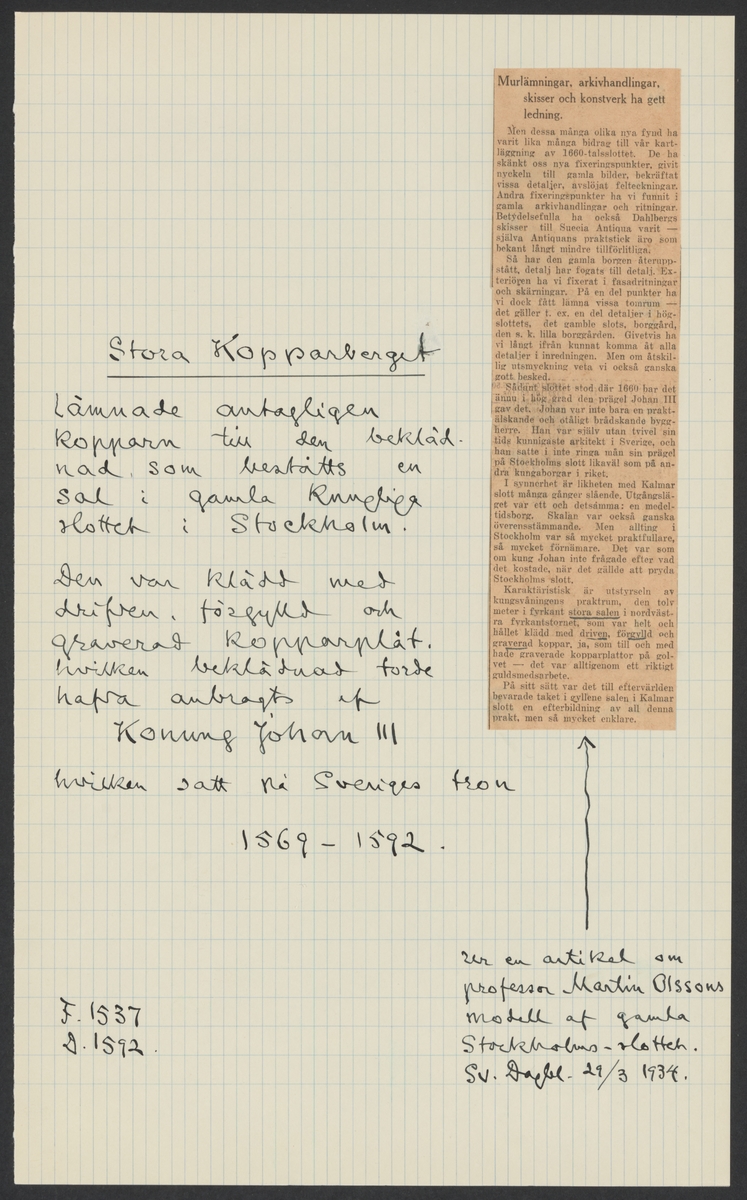 Murlämningar, arkivhandlingar,
skisser och konstverk ha gett
ledning.
Men dessa många olika nya fynd ha
varit lika många bidrag till vår kart-
läggning av 1660-talsslottet. De ha
skänkt oss nya fixeringspunkter, givit
nyckeln till gamla bilder, bekräftat
vissa detaljer, avslöjat felteckningar.
Andra fixeringspunkter ha vi funnit i
gamla arkivhandlingar och ritningar.
Betydelsefulla ha också Dahlbergs
skisser till Suecia Antiqua varit —
själva Antiquans praktstick äro som
bekant långt mindre tillförlitliga.
Så har den gamla borgen återupp-
stått, detalj har fogats till detalj. Ex-
teriören ha vi fixerat i fasadritningar
och skärningar. På en del punkter ha
vi dock fått lämna vissa tomrum —
det gäller t. ex. en del detaljer i hög-
slottets, det gamble slots, borggård,
den s. k. lilla borggården. Givetvis ha
vi långt ifrån kunnat komma åt alla
detaljer i inredningen. Men om åtskil-
lig utsmyckning veta vi också ganska
gott besked.
Sådant slottet stod där 1660 bar det
ännu i hög grad den prägel Johan III
gav det. Johan var inte bara en prakt-
älskande och otåligt brådskande bygg-
herre. Han var själv utan tvivel sin
tids kunnigaste arkitekt i Sverige, och
han satte i inte ringa mån sin prägel
på Stockholms slott likaväl som på an-
dra kungaborgar i riket.
I synnerhet är likheten med Kalmar
slott många gånger slående. Utgångslä-
get var ett och detsamma: en medel-
tidsborg. Skalan var också ganska
överensstämmande. Men allting i
Stockholm var så mycket praktfullare,
så mycket förnämare. Det var som
om kung Johan inte frågade efter vad
det kostade, när det gällde att pryda
Stockholms slott.
Karaktäristisk är utstyrseln av
kungsvåningens praktrum, den tolv
meter i fyrkant stora salen i nordväst-
ra fyrkantstornet, som var helt och
hållet klädd med driven, förgylld och
graverad koppar, ja, som till och med
hade graverade kopparplattor på gol-
vet — det var alltigenom ett riktigt
guldsmedsarbete.
På sitt sätt var det till eftervärlden
bevarade taket i gyllene salen i Kalmar
slott en efterbildning av all denna
prakt, men så mycket enklare.
Stora Kopparberget
lämnade antagligen
kopparn till den beklåd-
nad, som bestått en
sal i gamla Kungliga
slottet i Stockholm.
Den var klädd med
drifven, förgylld och
graverad kopparplåt,
hvilken beklädnad torde
hafva anbragts af
Konung Johan III
hvilken satt på Sveriges tron
1569 – 1592.
F. 1537
D. 1592.
ur en artikel om
professor Martin Olssons
modell af gamla
Stockholms-slottet.
Sv. Dagbl. 29/3 1934.